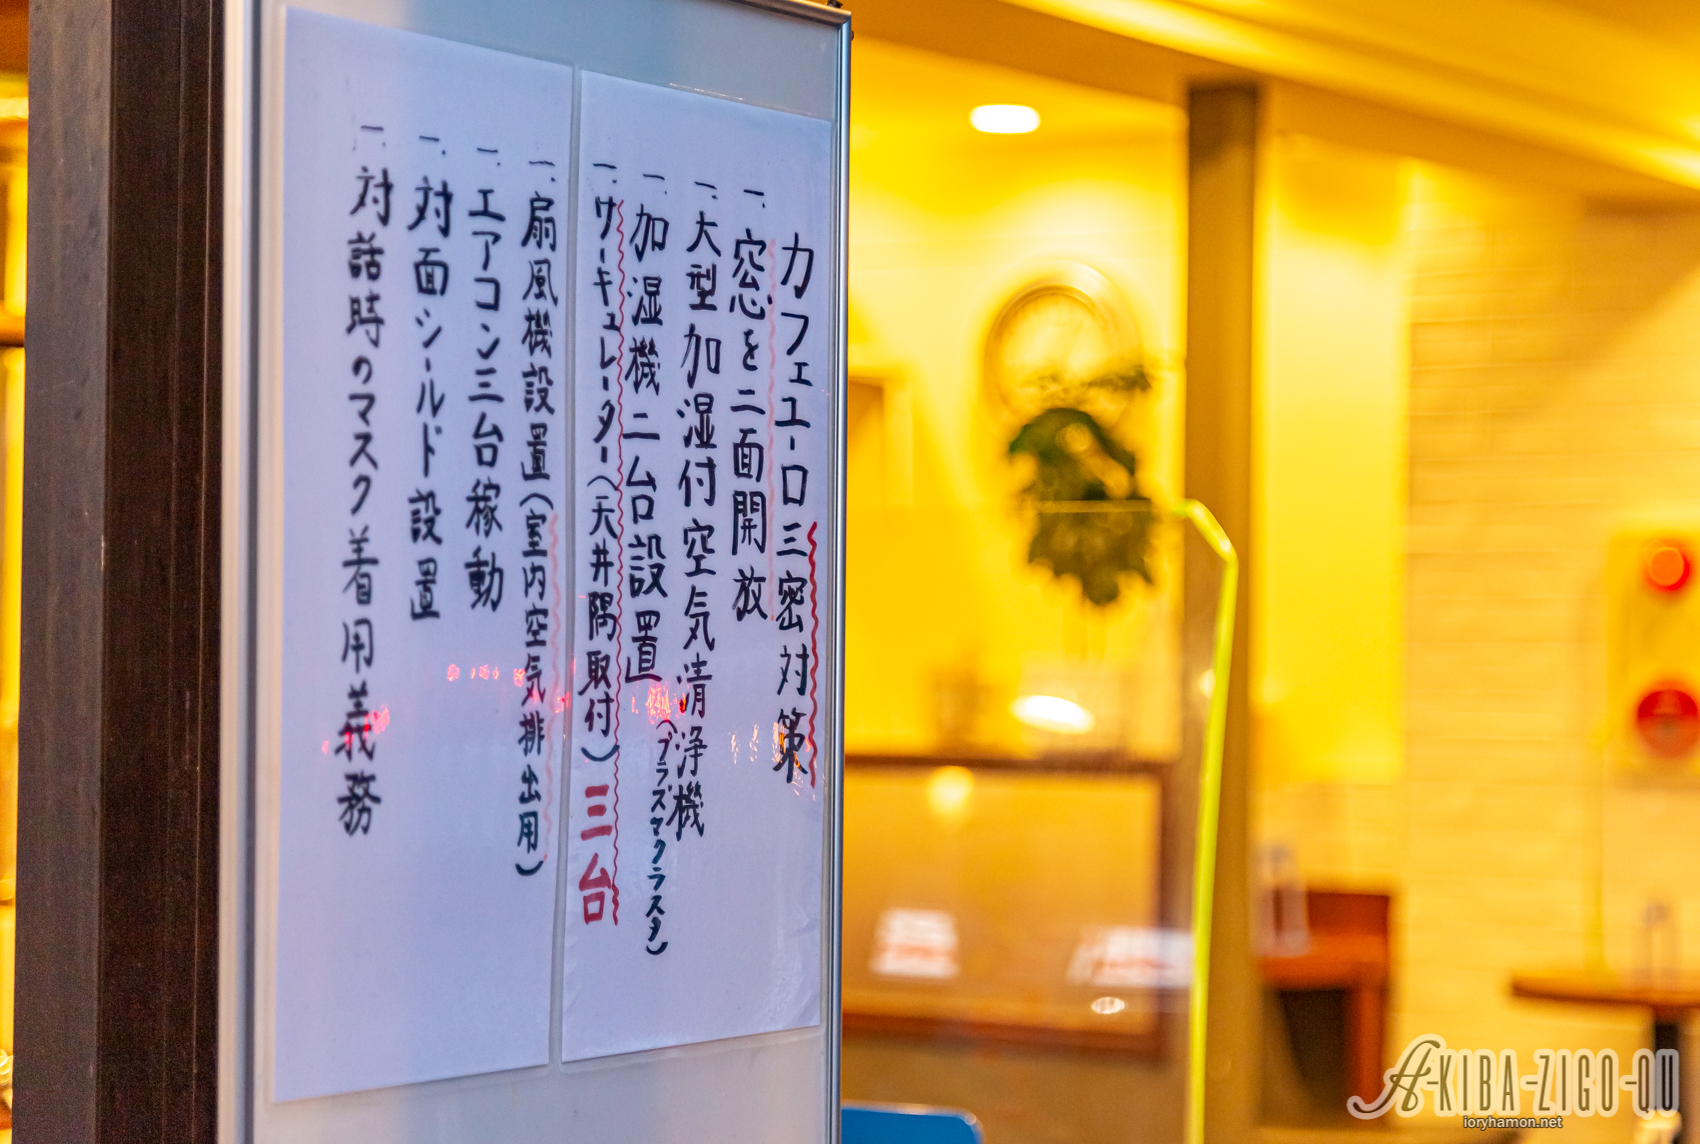 カフェユーロ三密対策
一、窓を二面開放
一、大型加湿付空気清浄機
(プラズマクラスタ)
一、加湿機二台設置
一、サーキュレーター(天井隅取付)三台
一、扇風機設置(室内空気排出用)
一、エアコン三台稼動
一、対面シールド設置
一、対話時のマスク着用義務
A-KIBA-ZIGO-QU
ioryhamon.net